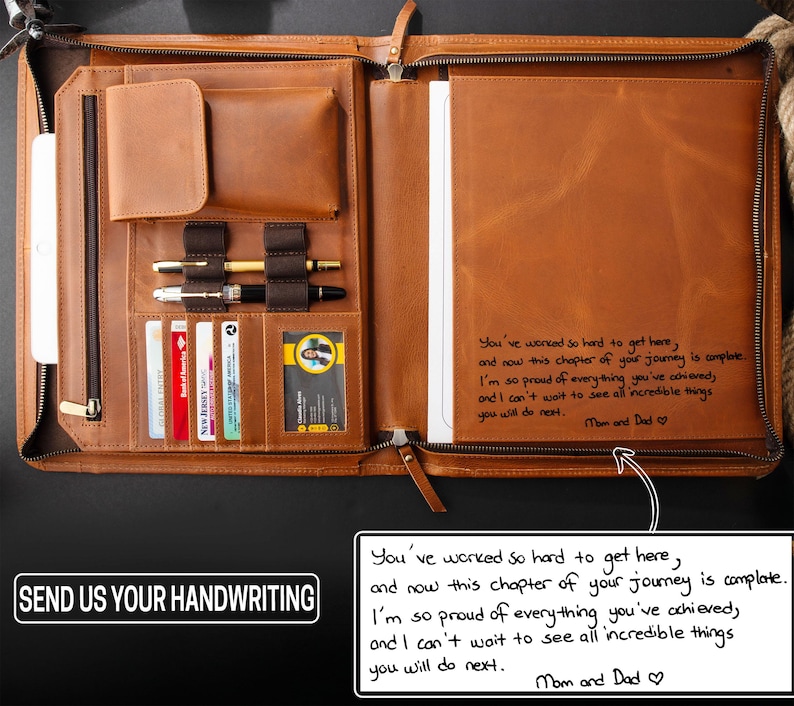 GLOBAL ENTRY
Bank of America
NEW JERSEY
UNITED STATES OF AMERICA
Claudia Alves
You've worked so hard to get here,
and now this chapter of your journey is complate.
I'm so proud of everything you've achieved,
and I can't wait to see all incredible things
you will do next.
Mom and Dad ♡
SEND US YOUR HANDWRITING
You've worked so hard to get here,
and now this chapter of your journey is complate.
I'm so proud of everything you've achieved,
and I can't wait to see all incredible things
you will do next.
Mom and Dad ♡